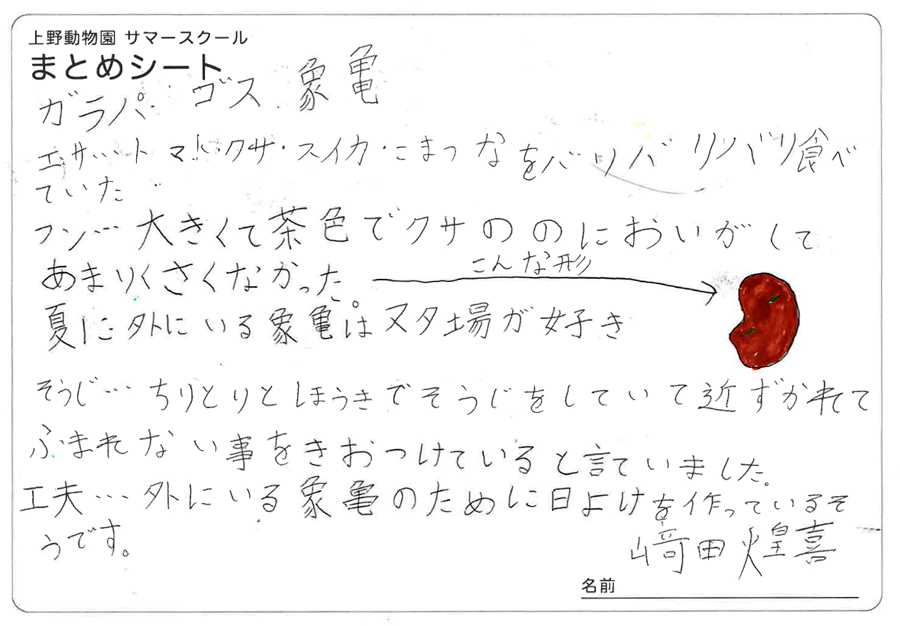 上野動物園 サマースクール
まとめシート
ガラパゴス象亀
エサ…トマト・クサ・スイカ・こまつなをバリバリバリ食べ
ていた
フン…大きくて茶色でクサののにおいがして
あまりくさくなかった。
こんな形
夏に外にいる象亀はヌタ場が好き
そうじ…ちりとりとほうきでそうじをしていて近ずかれて
ふまれない事をきおつけていると言ていました。
工夫…外にいる象亀のために日よけを作っているそ
うです。
﨑田煌喜
名前